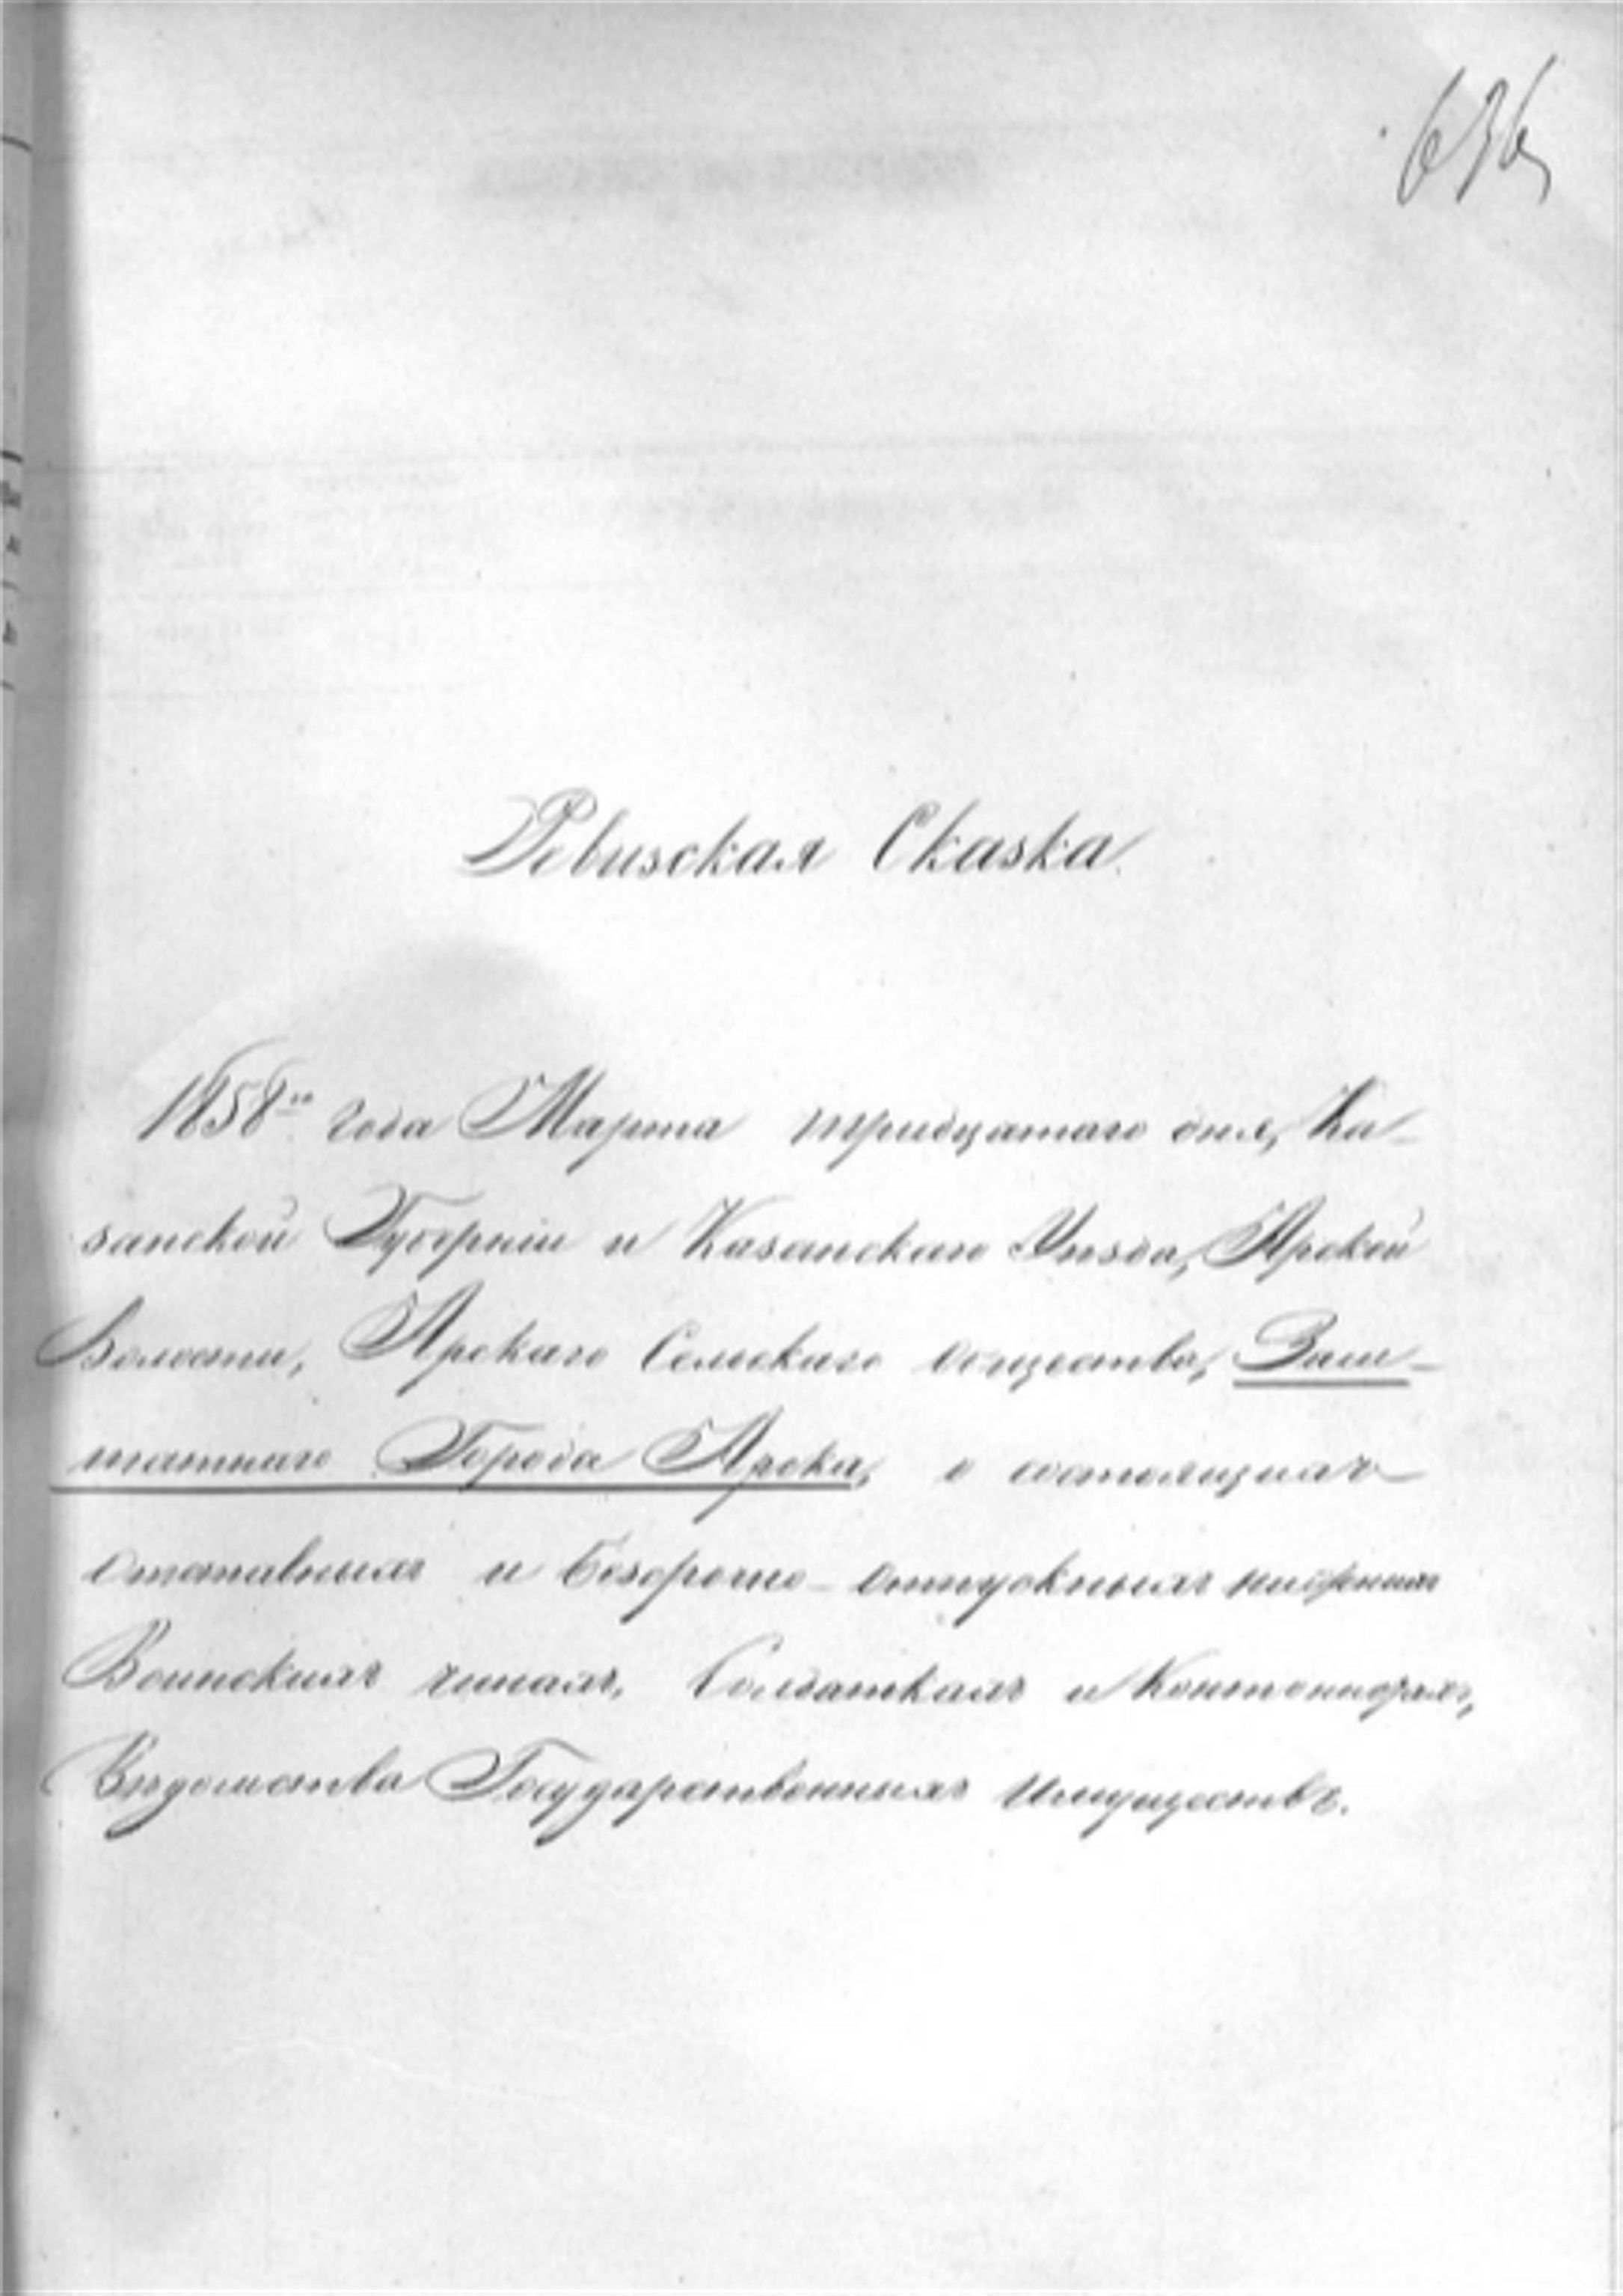 636
Ревизская Сказка.
1858го года Марта тридцатаго дня, Ка-
занской Губерніи и Казанскаго Уѣзда, Арской
Волости, Арскаго Сельскаго общества, Заш-
татнаго Города Арска, о состоящихъ
отставныхъ и безсрочно-отпускныхъ нижнихъ
Воинскихъ чинахъ, Солдаткахъ и Контонистахъ,
Вѣдомства Государственныхъ Имуществъ.